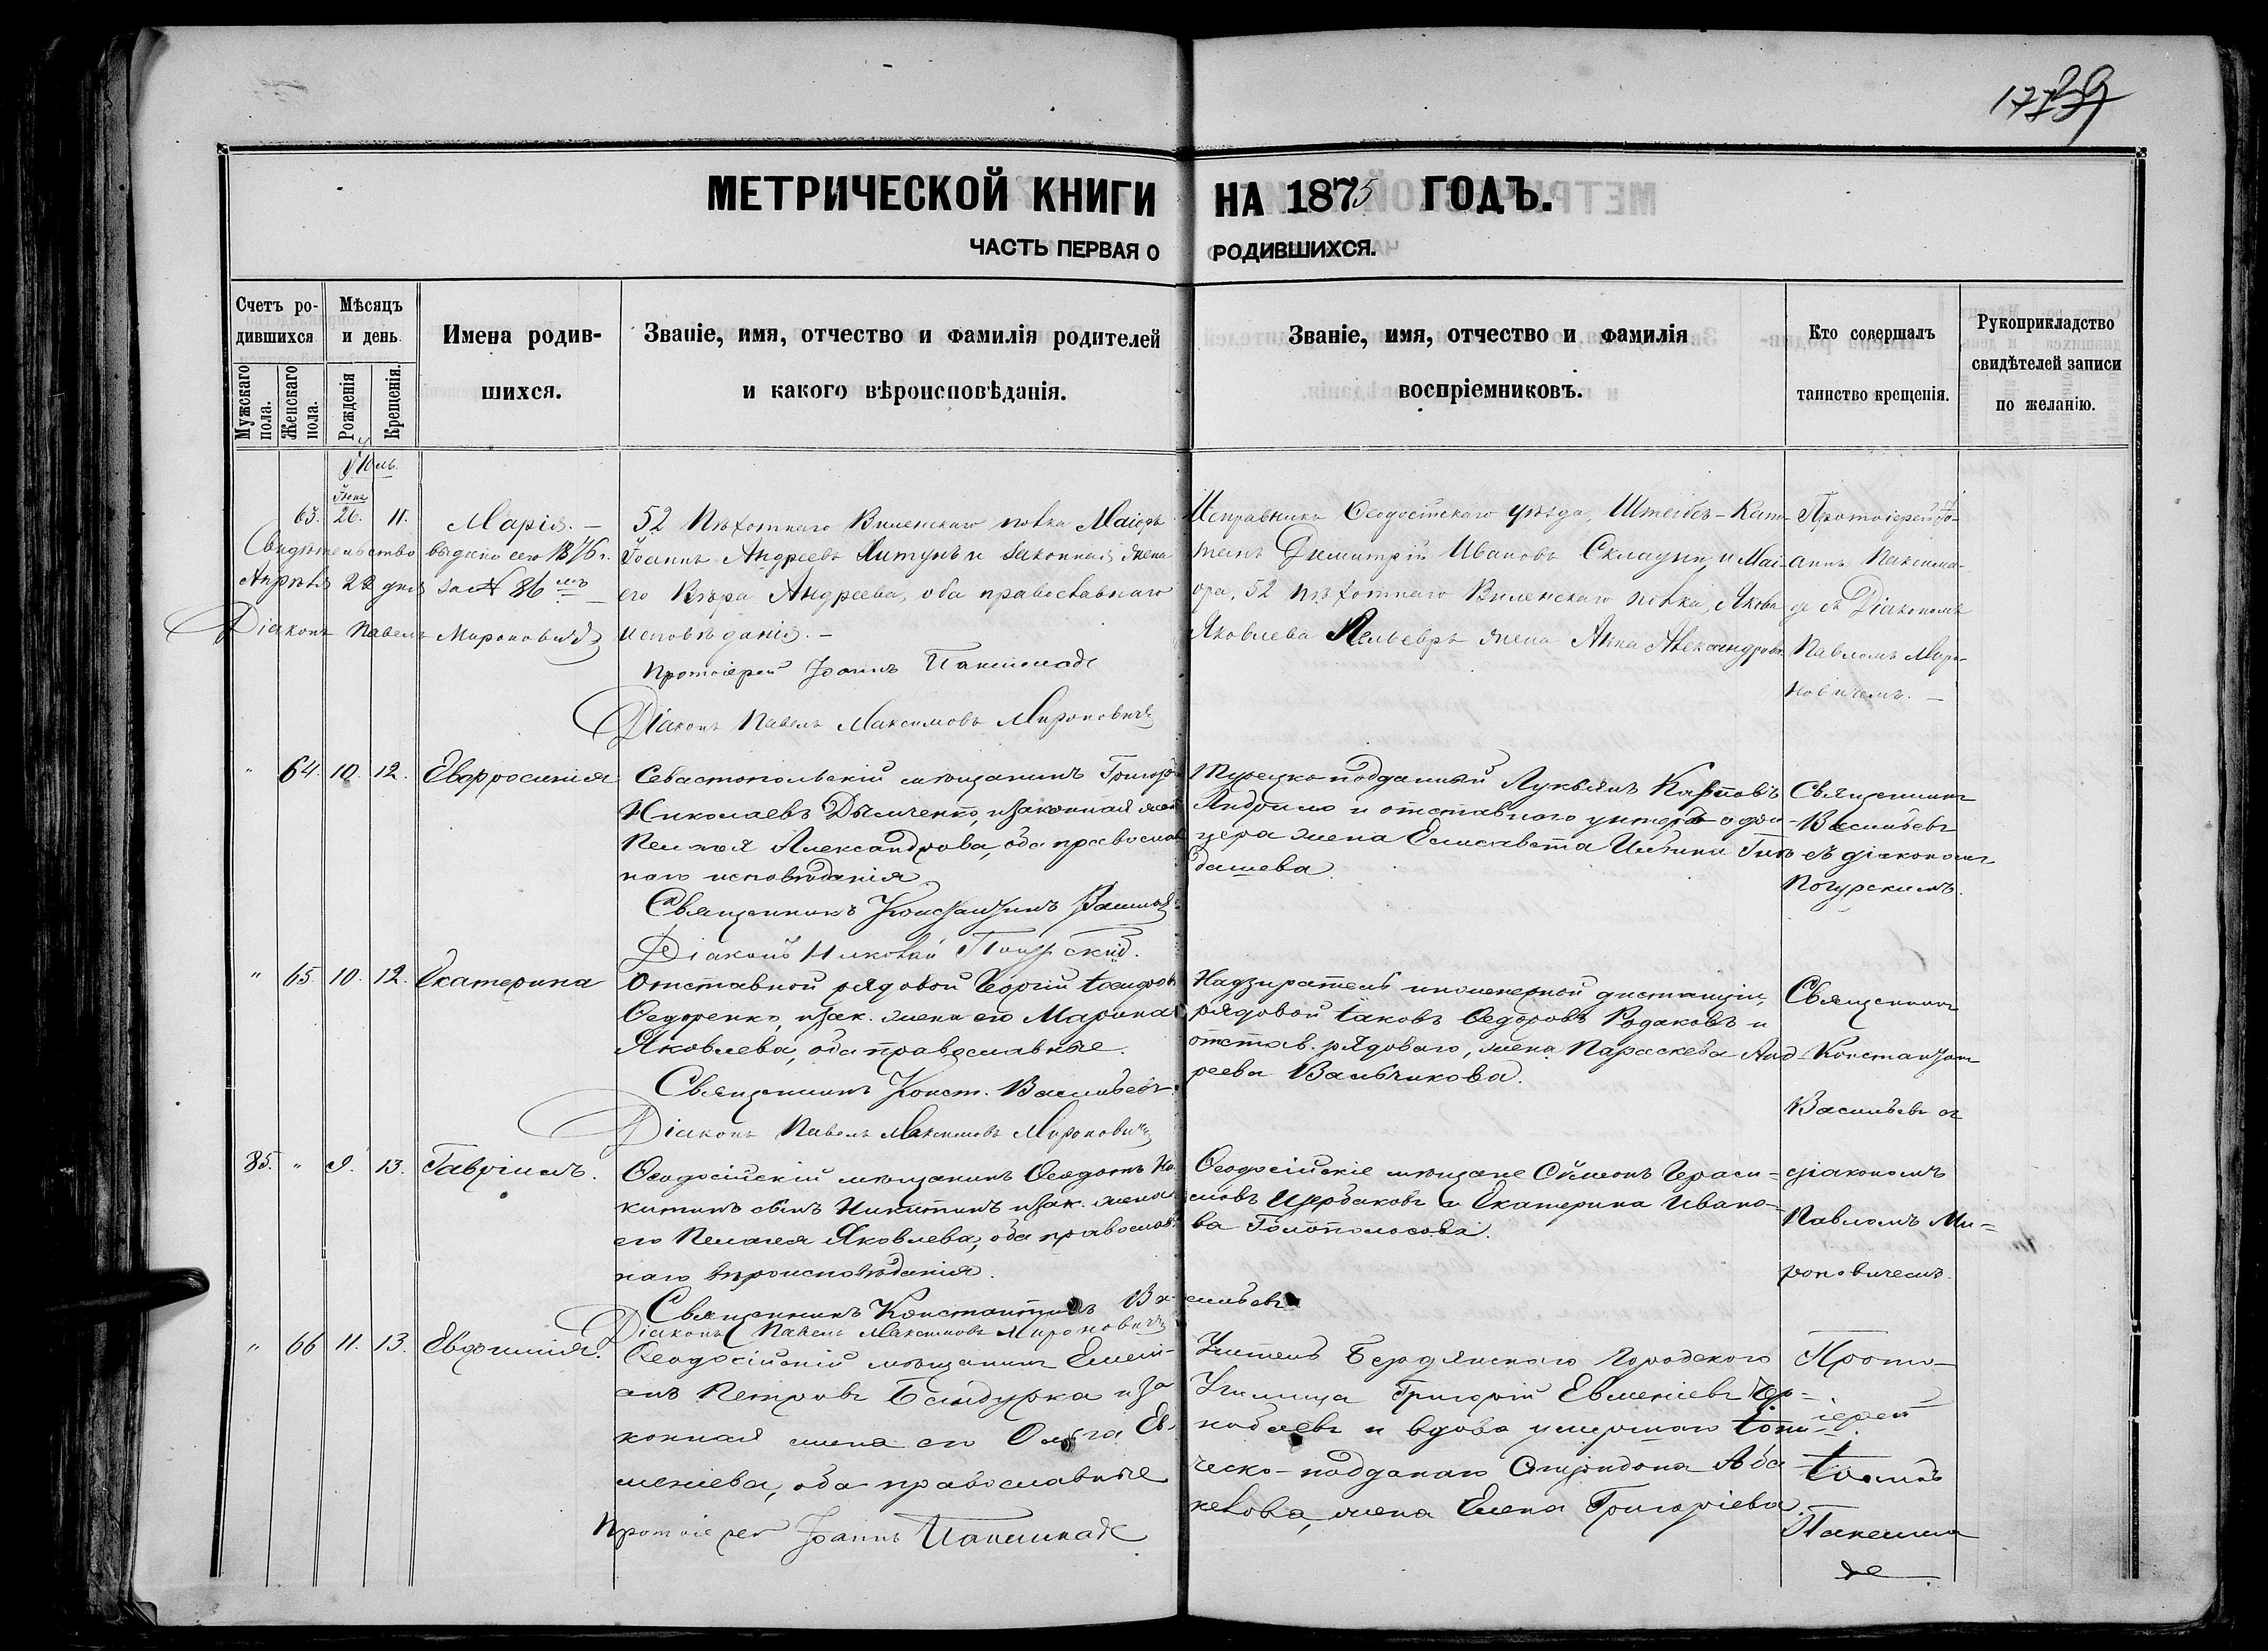 177
МЕТРИЧЕСКОЙ КНИГИ НА 1875 ГОДЪ.
ЧАСТЬ ПЕРВАЯ О РОДИВШИХСЯ.
Счетъ родившихся
Мужскаго пола.
Женскаго пола.
Мѣсяцъ и день
Рожденія
Крещенія.
Имена родившихся.
Званіе, имя, отчество и фамилія родителей
и какого вѣроисповѣданія.
Званіе, имя, отчество и фамилія
воспріемниковъ.
Кто совершалъ
таинство крещенія.
Рукоприкладство
свидѣтелей записи
по желанію.
Іюль.
Іюня
63. 26. 11. Марія. —
Свидѣтельство выдано сего 1876 г.
Апрѣля 28 дня за № 86
Діаконъ Павелъ Мироновичъ
52 Пѣхотнаго Виленскаго полка Маіоръ
Іоаннъ Андреевъ и законная жена
его Вѣра Андреева, оба православнаго
исповѣданія. —
Протоіерей Іоаннъ
Діаконъ Павелъ Максимовъ Мироновичъ
Исправникъ Ѳеодосійскаго уѣзда, Штабсъ-Капи-
танъ Димитрій Ивановъ и Маі-
ора, 52 пѣхотнаго Виленскаго полка, Якова
Яковлева жена Анна Александрова.
Протоіерей Іо-
аннъ
де съ Діакономъ
Павломъ Миро-
новичемъ. —
" 64. 10. 12. Евфросинія
Севастопольскій мѣщанинъ Григорій
Николаевъ Дымченко, и законная жена
Пелагея Александрова, оба православ-
наго исповѣданія
Священникъ Константинъ Васильевъ
Діаконъ Николай Погурскій.
Турецко-подданный Лукьянъ Карповъ
и отставного унтеръ-офи-
цера жена Елисавета Ильина
Священникъ
Васильевъ
съ діакономъ
Погурскимъ.
" 65. 10. 12. Екатерина
Отставной рядовой Георгій
Ѳедоренко, и зак. жена его Марина
Яковлева, оба православные.
Священникъ Конст. Васильевъ.
Діаконъ Павелъ Максимовъ Мироновичъ
Надзиратель инженерной дистанціи,
рядовой Іаковъ Ѳедоровъ Родаковъ и
отстав. рядоваго, жена Параскева Анд-
реева Вальчикова.
Священникъ
Константинъ
Васильевъ съ
85. " 9. 13. Гавріилъ.
Ѳеодосійскій мѣщанинъ Ѳеодотъ Ни-
китинъ сынъ Никитинъ и зак. жена
его Пелагея Яковлева, оба православ-
наго вѣроисповѣданія.
Священникъ Константинъ Васильевъ
Діаконъ Павелъ Максимовъ Мироновичъ
Ѳеодосійскіе мѣщане Симонъ Гераси-
мовъ Щербаковъ и Екатерина Ивано-
ва Голополосова.
діакономъ
Павломъ Ми-
роновичемъ.
" 66 11. 13. Евфимія.
Ѳеодосійскій мѣщанинъ Емелі-
анъ Петровъ Бандурка и за-
конная жена его Ольга Ев-
меніева, оба православные
Протоіерей Іоаннъ
Учитель Бердянскаго Городского
Училища Григорій Евменіевъ
и вдова умершаго Іони-
ческо-подданаго Спиридона
жена Елена Григоріева.
Прото-
іерей
Іоаннъ